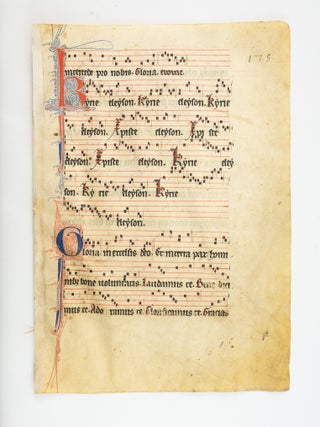 175
intercede pro nobis. Gloria. evovae.
Kyrie eleyson. Kyrie eleyson. Kyrie
eleyson. Xpiste eleyson. Xpiste
eleyson. Xpiste eleyson. Kyrie eley
son. Kyrie eleyson. Kyrie
eleyson.
Gloria in excelsis deo. Et in terra pax homi
nibus bone voluntatis. Laudamus te. Bene dici
mus te. Ado ramus te. Glorificamus te. Gracias